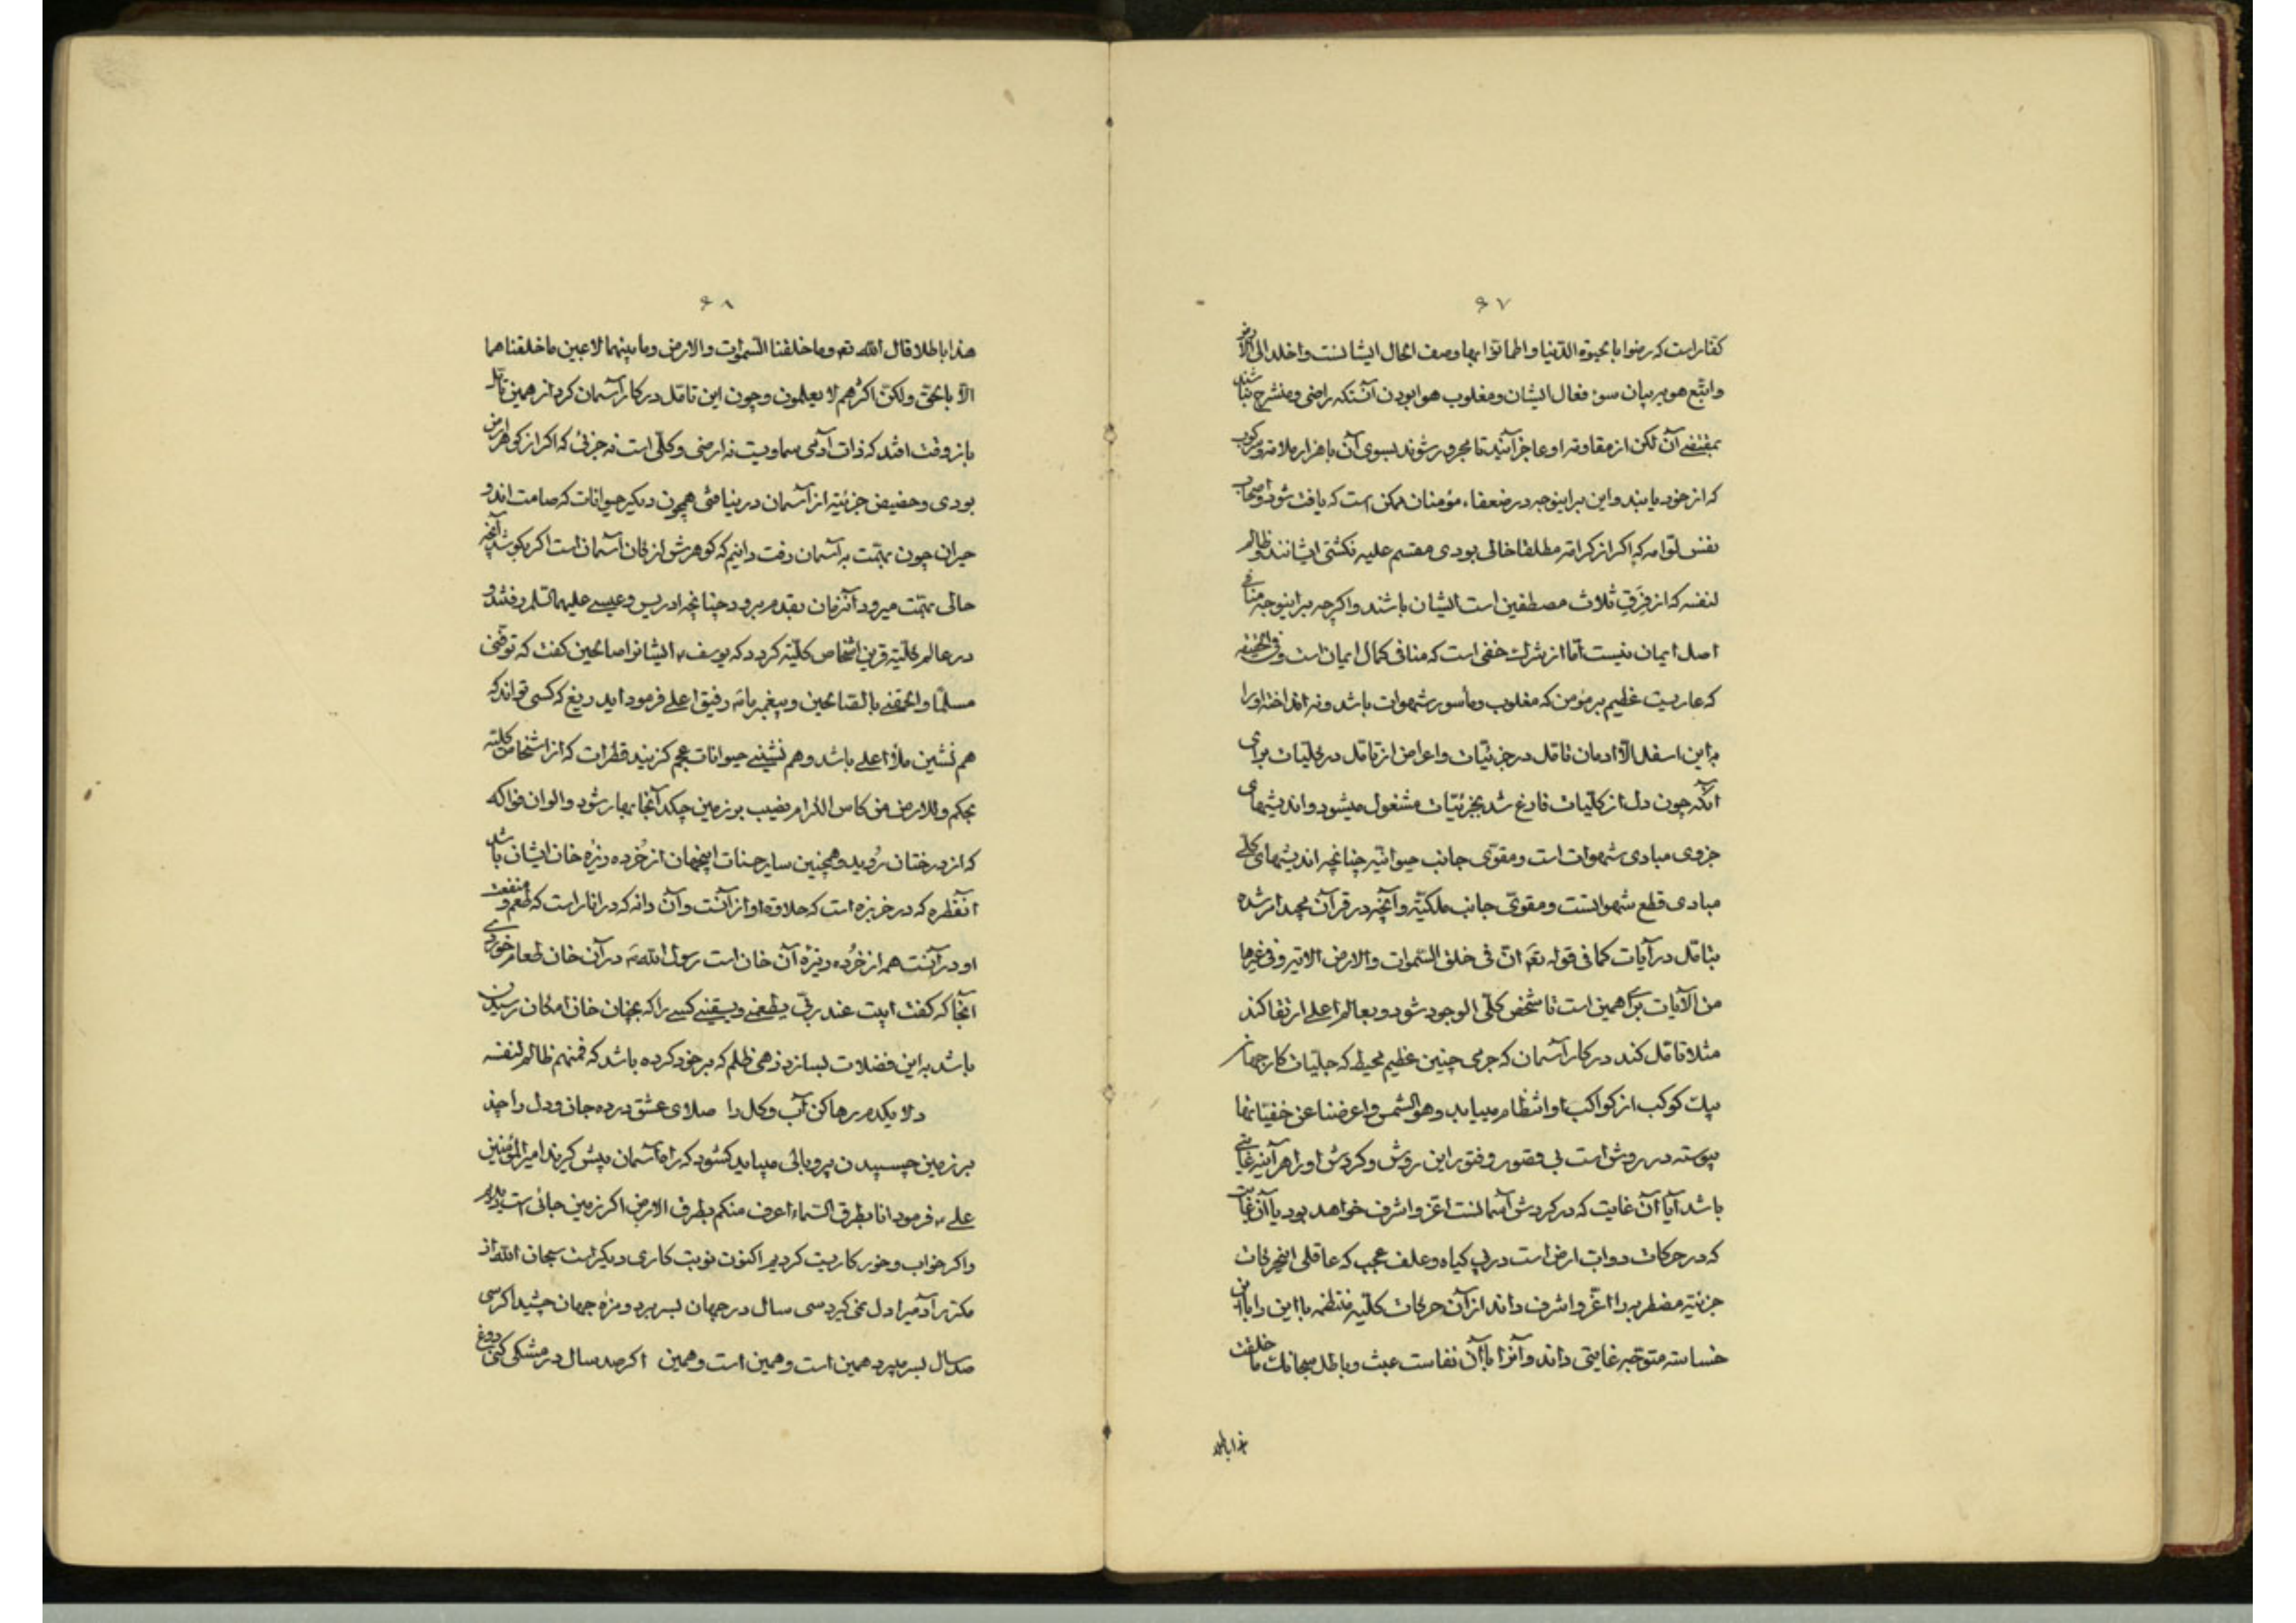 ۶۷
کفار است که رضوا بالحیوة الدنیا و اطمانوا بها وصف الحال ایشانست و اخلد الی الارض
و اتبع هویه بیان سوء فعال ایشان و مغلوب هوا بودن آنستکه راضی و منشرح نباشند
بمقتضی آن لکن از مقاومه او عاجز آیند تا مجرور شوند بسوی آن با هزار ملامة و سرکوب
که از خود یابند و این براینوجه در ضعفاء مؤمنان ممکن است که یافت شود و اصحاب
نفس لوامه که اگر از کرامة مطلقا خالی بودی مقسم علیه نگشتی ایشانند و ظالم
لنفسه که از فِرَقِ ثلاث مصطفین است ایشان باشند و اگرچه براینوجه منافی
اصل ایمان نیست اما از شرک خفی است که منافی کمال ایمان است و فی الحقیقه
که عاریست عظیم بر مؤمن که مغلوب و مأسور شهوات باشد و نه انداخته او را
باین اسفل الا ادمان تامل در جزئیات و اعراض از تامل در کلیات برای
آنکه چون دل از کلیات فارغ شد بجزئیات مشغول میشود و اندیشهای
جزوی مبادی شهوات است و مقوی جانب حیوانیه چنانچه اندیشهای کلی
مبادی قطع شهواتست و مقوی جانب ملکیّه و آنچه در قرآن مجید امر شده
بتامل در آیات کما فی قوله تعَ ان فی خلق السموات و الارض الآیه و فی غیرها
من الآیات برای همین است تا شخص کلی الوجود شود و بعالم اعلی ارتقا کند
مثلا تامل کند در کار آسمان که جرمی چنین عظیم محیط که جلیات کار جهان
بیک کوکب از کواکب او انتظام مییابد و هو الشمس و اعرضنا عن خفیّاتها
پیوسته در روش است بی قصور و فتور این روش و گردش او را هر آینه غایتی
باشد آیا آن غایت که در گردش آسمانست اعز و اشرف خواهد بود یا آن غایت
که در حرکات دواب ارض است در پی گیاه و علف عجب که عاقلی اینحرکات
جزئیه مضطربه را اعز و اشرف داند از آن حرکات کلیه منتظمه یا این را با این
خساست متوجه غایتی داند و آنرا با آن نفاست عبث و باطل سبحانک ما خلقت
هذا باطلا
۶۸
هذا باطلا قال الله تعَ و ما خلقنا السموات و الارض و ما بینهما لاعبین ما خلقناهما
الا بالحق و لکن اکثرهم لا یعلمون و چون این تامل در کار آسمان کرد از همین تامل
باز وقت افتد که ذات آدمی سماویست نه ارضی و کلی است نه جزئی که اگر از گوهر ارض
بودی و حضیض جزئیه از آسمان در نیافتی همچون دیگر حیوانات که صامت اند و
حیران چون بهمت به آسمان رفت دانیم که گوهرش از کان آسمان است اگر بکوشد آنچه
حالی بهمت میرود آنزمان بقدم برود چنانچه ادریس و عیسی علیهما السلم رفتند و
در عالم کلیه قرین اشخاص کلیّه گردد که یوسف ع ایشانرا صالحین گفت که توفنی
مسلماً و الحقنی بالصالحین و پیغمبر ما ص رفیق اعلی فرمود اید دریغ که کسی تواند که
هم نشین ملأ اعلی باشد و هم نشینی حیوانات عجم گزیند قطرات که از اشخاص کلیّه
بحکم و للارض من کاس الکرام نصیب بر زمین چکد آنجا بهار شود و الوان فواکه
که از درختان رُوید و همچنین سایر حسنات اینجهان از خُرده ریزه خان ایشان باشد
آنقطره که در خربزه است که حلاوة او از آنست و آن دانه که در انار است که طعم و منفعت
او در آنست هم از خُرده ریزهٔ آن خان است رسول الله ص در آن خان طعام خوردی
آنجا که گفت ابیت عند ربّی یطعمنی و یسقینی کسی را که بچنان خان امکان رسیدن
باشد به این فضلات بسازد زهی ظلم که بر خود کرده باشد که فمنهم ظالم لنفسه
دلا یکدم رها کن آب و گل را صلای عشق درده جان و دل را چند
بر زمین چسپیدن پر و بالی میباید گشود که راه آسمان پیش گیرند امیر المؤمنین
علی ع فرمود انا بطرق السماء اعرف منکم بطرق الارض اگر زمین جائی است دیدیم
و اگر خواب و خور کاریست کردیم اکنون نوبت کاری دیگر است سبحان الله از
مکرر آدمیرا دل نمی گیرد سی سال در جهان بسر برد و مزهٔ جهان چشید اگر سی
صد سال بسر میبرد همین است و همین است و همین اگر صد سال در مشکی کنی دوغ